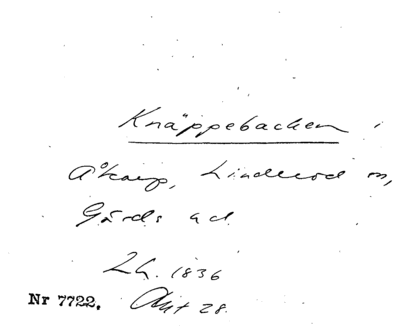 Knäppebacken i
Åkarp, Linderöd sn,
Gärds hd
Lh. 1836
Nr 7722. Akt 28.